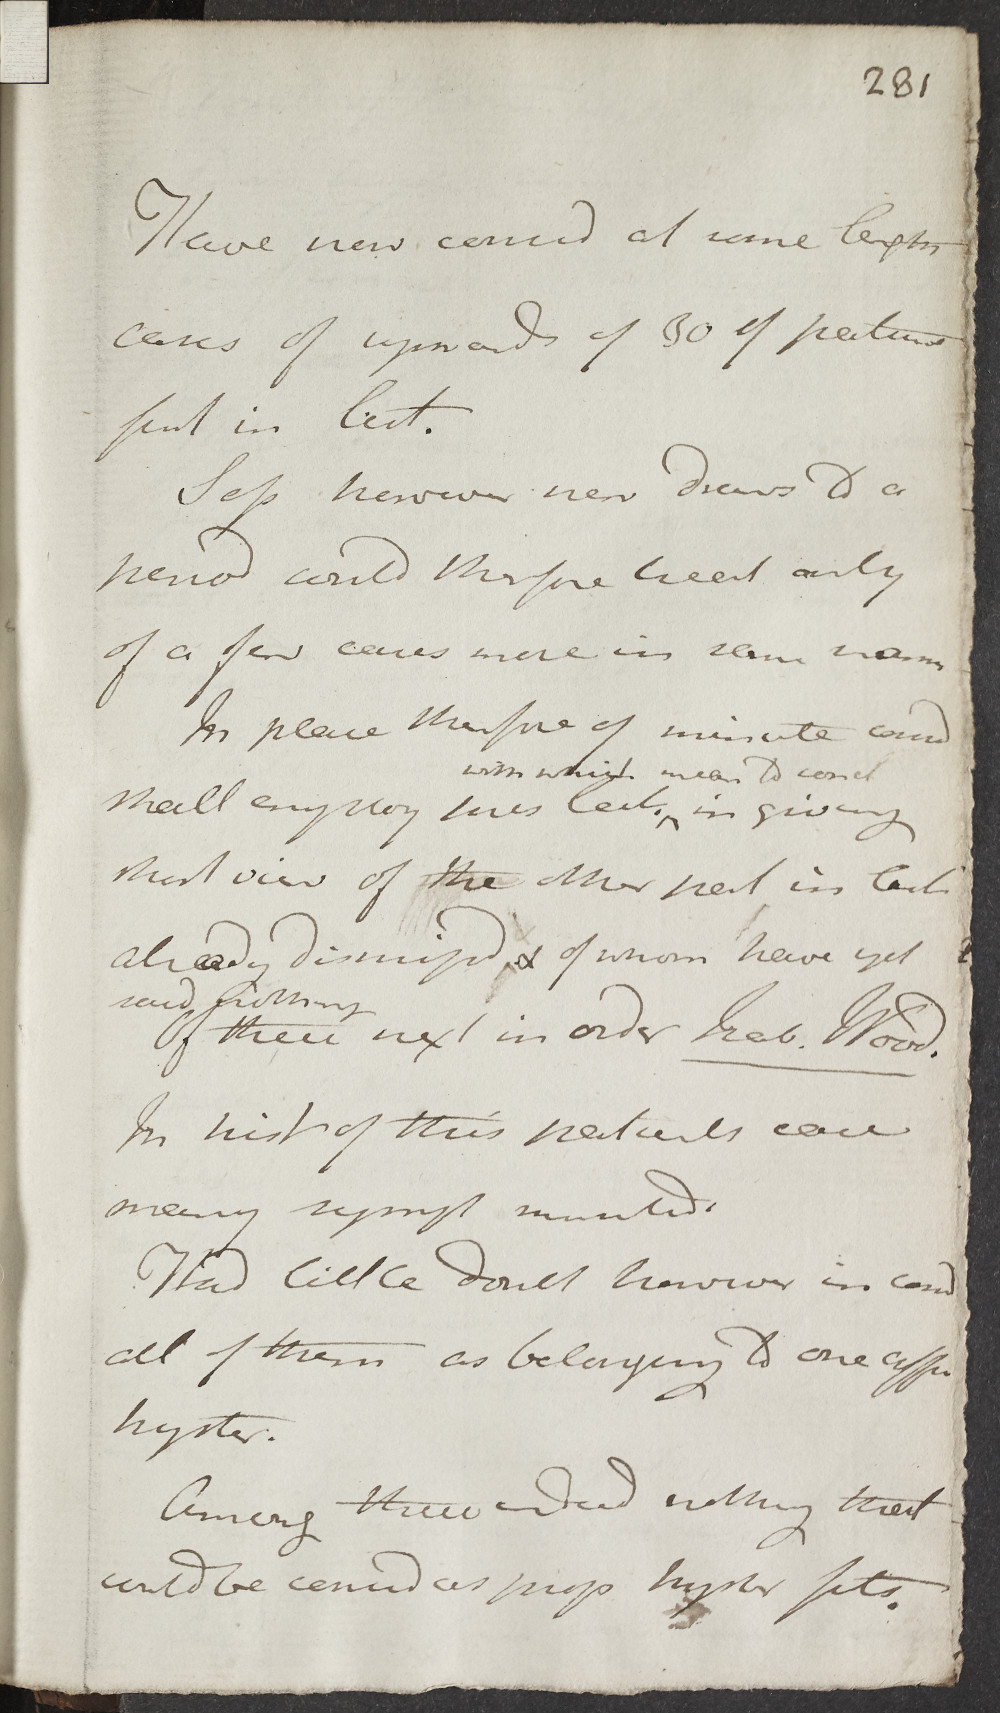 281
Have now consid at some length
cases of upwards of 30 of patients
put in list.
Sess however now draws to a
period could therfore treat only
of a few cases more in same mann
In place therfore of minute consid
with which mean to concl
shall employ pres lect. ^ in giving
short view of the other pat in list
already dismissd & of whom have yet
said nothing
Of these next in order Isab. Wood.
In hist of this patients case
many sympt mentd.
Had little doubt however in consd
all of them as belonging to one affn
hyster.
Among these indeed nothing that
could be consid as prop hyster fits.